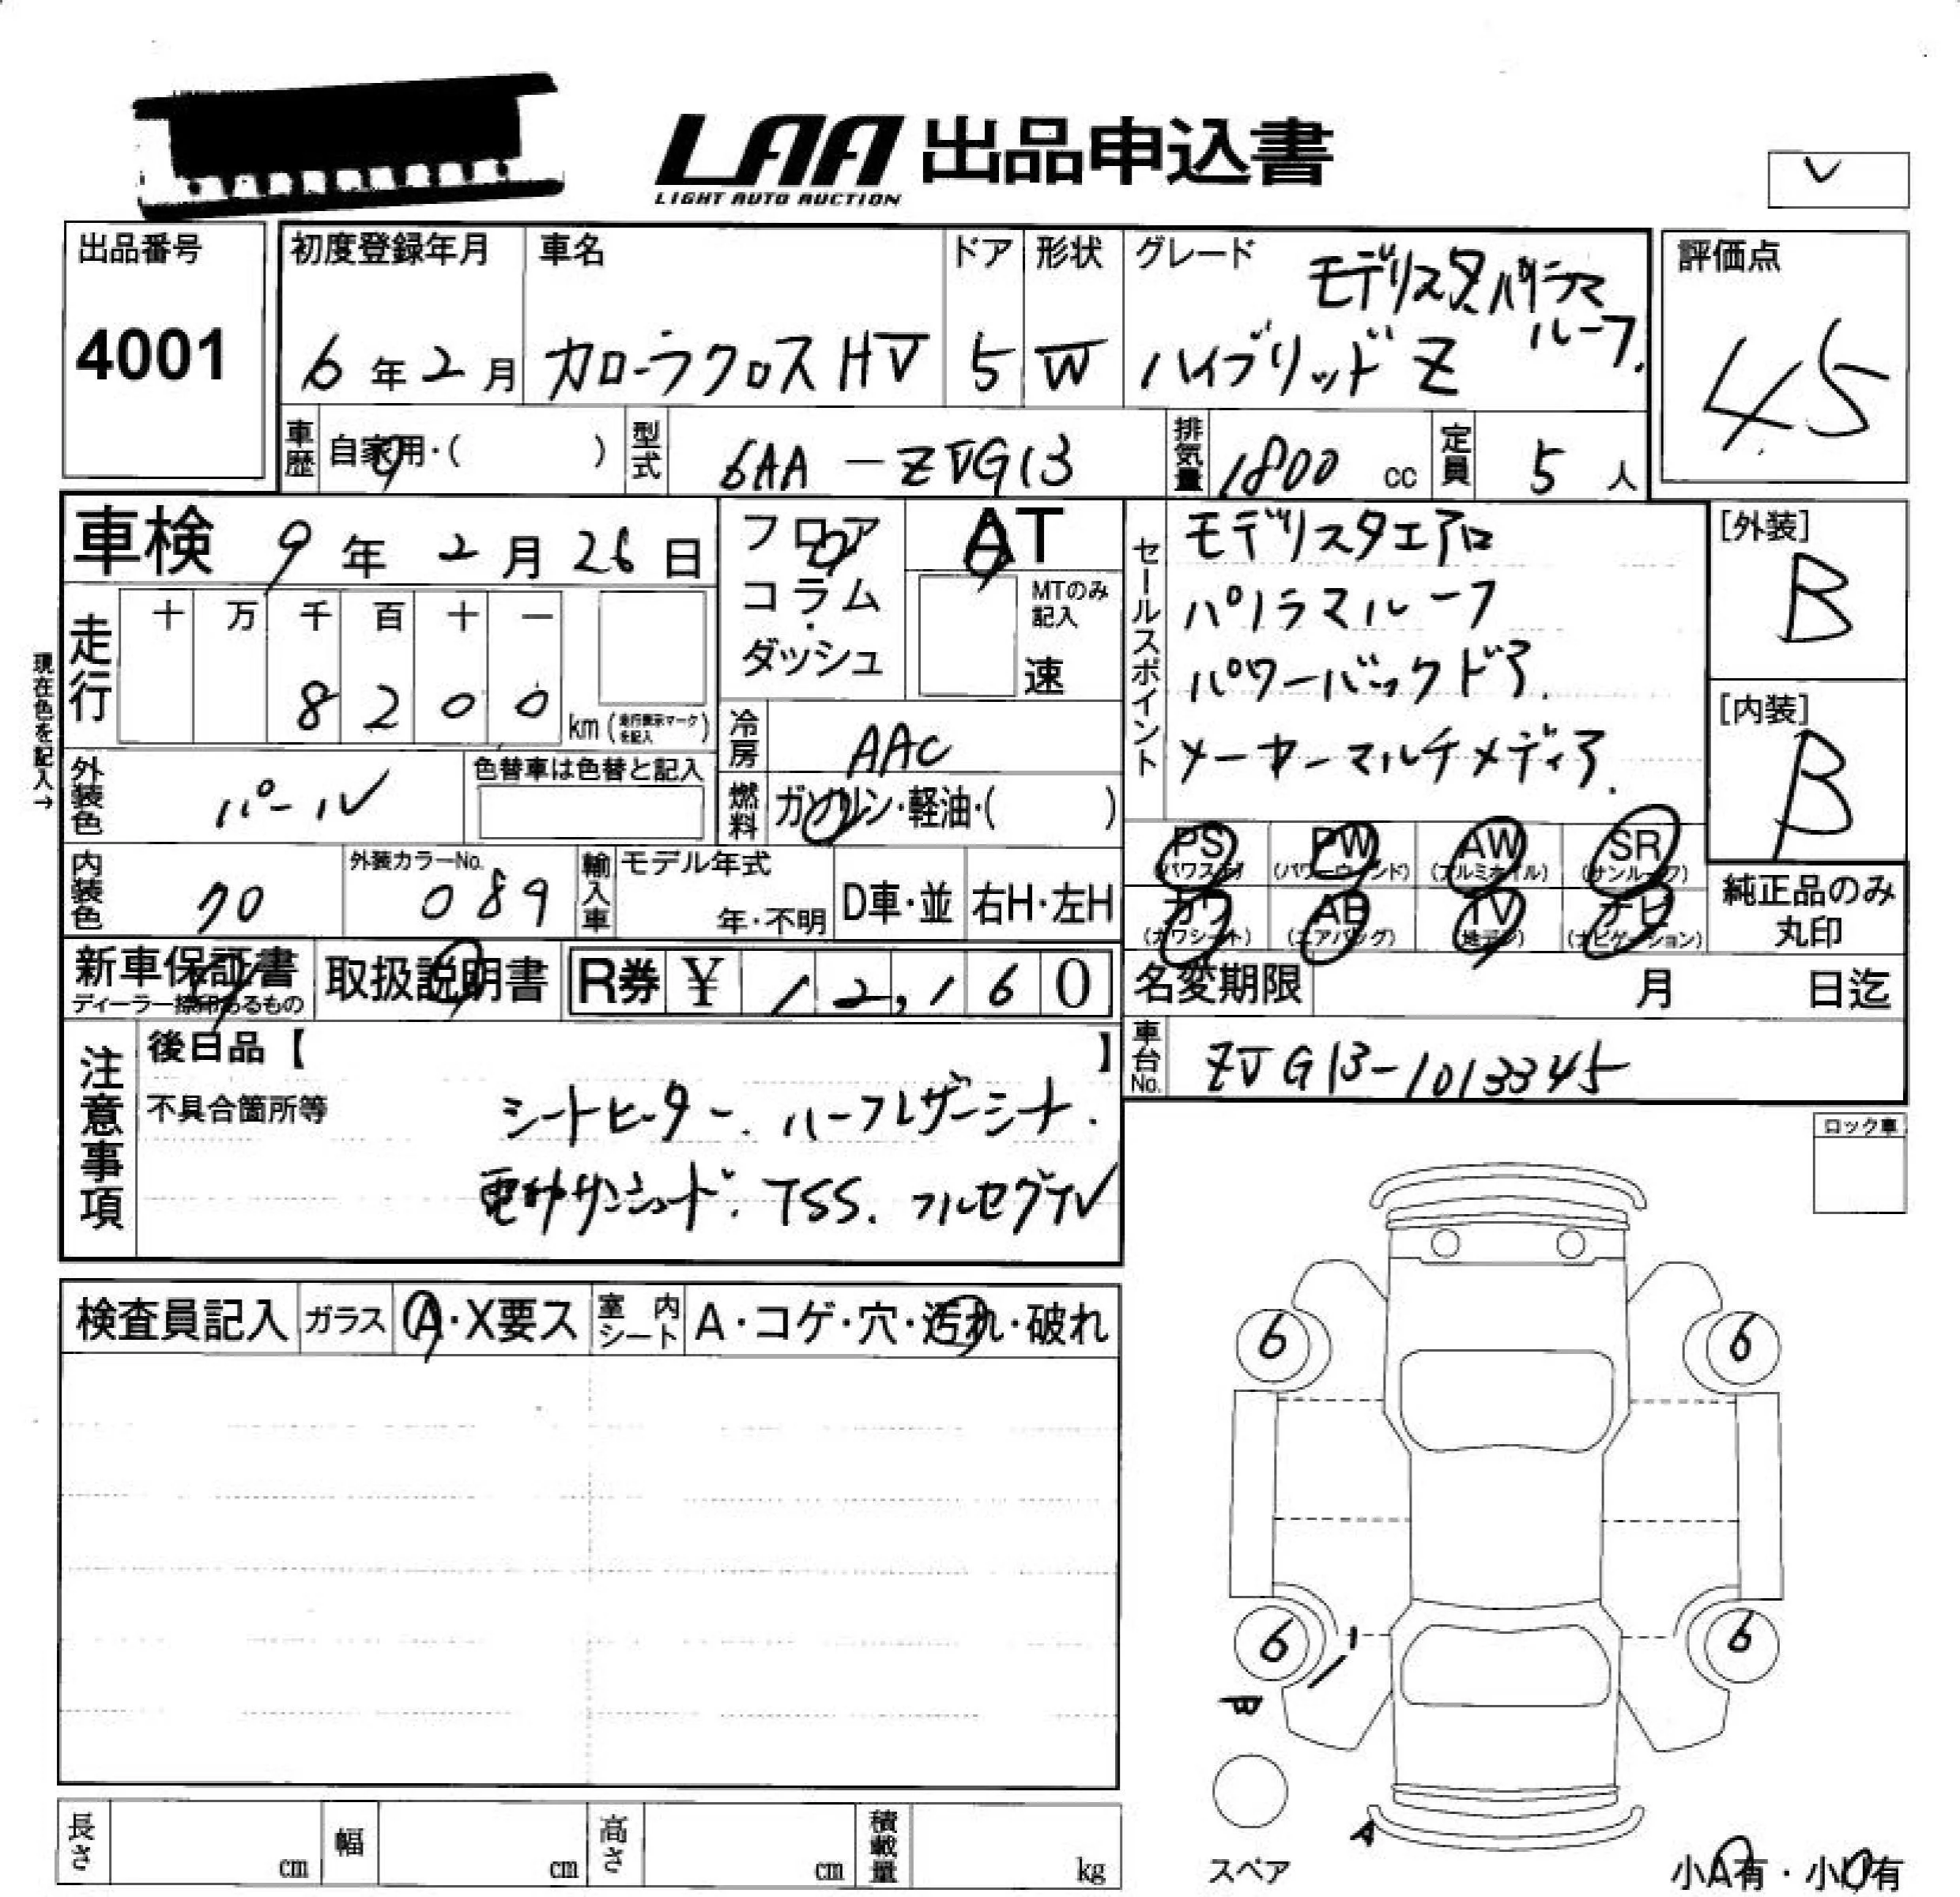 LAA 出品申込書
LIGHT AUTO AUCTION
出品番号
4001
初度登録年月
6年2月
車名
カローラクロスHV
ドア
5
形状
W
グレード
モデリスタパノラマ
ルーフ
ハイブリッドZ
評価点
4.5
車歴
自家用・( )
型式
6AA-ZVG13
排気量
1800 cc
定員
5人
車検
9年2月26日
走行
十 万 千 百 十 一
8 2 0 0
km(走行表示マークを記入)
現在色を記入→
フロア
コラム
・
ダッシュ
AT
MTのみ
記入
速
セールスポイント
モデリスタエアロ
パノラマルーフ
パワーバックドア.
メーカーマルチメディア.
[外装]
B
[内装]
B
外装色
パール
色替車は色替と記入
冷房
AAC
燃料
ガソリン・軽油・( )
内装色
クロ
外装カラーNo.
089
輸入車
モデル年式
年・不明
D車・並
右H・左H
PS
(パワステ)
PW
(パワーウインド)
AW
(アルミホイル)
SR
(サンルーフ)
カワ
(カワシート)
AB
(エアバッグ)
TV
(地デジ)
ナビ
(ナビゲーション)
純正品のみ
丸印
新車保証書
ディーラー捺印あるもの
取扱説明書
R券 ¥ 12,160
名変期限
月 日迄
車台No.
ZVG13-1013345
注意事項
後日品【 】
不具合箇所等
シートヒーター. ハーフレザーシート.
電動サンシェード. TSS. フルセグTV
ロック車
検査員記入
ガラス
A・X要ス
室内シート
A・コゲ・穴・汚れ・破れ
6
6
6
6
W
A
スペア
小A有・小U有
長さ
cm
幅
cm
高さ
cm
積載量
kg